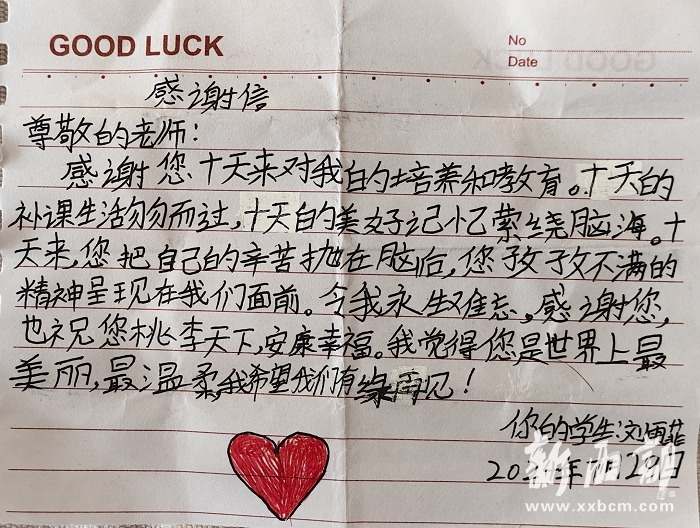 GOOD LUCK
No
Date
感谢信
尊敬的老师：
感谢您十天来对我的培养和教育。十天的
补课生活匆匆而过，十天的美好记忆萦绕脑海。十
天来，您把自己的辛苦抛在脑后，您孜孜不满的
精神呈现在我们面前。令我永生难忘。感谢您，
也祝您桃李天下，安康幸福。我觉得您是世界上最
美丽，最温柔，我希望我们有缘再见！
你的学生：刘雨菲
新西部
www.xxbcm.com